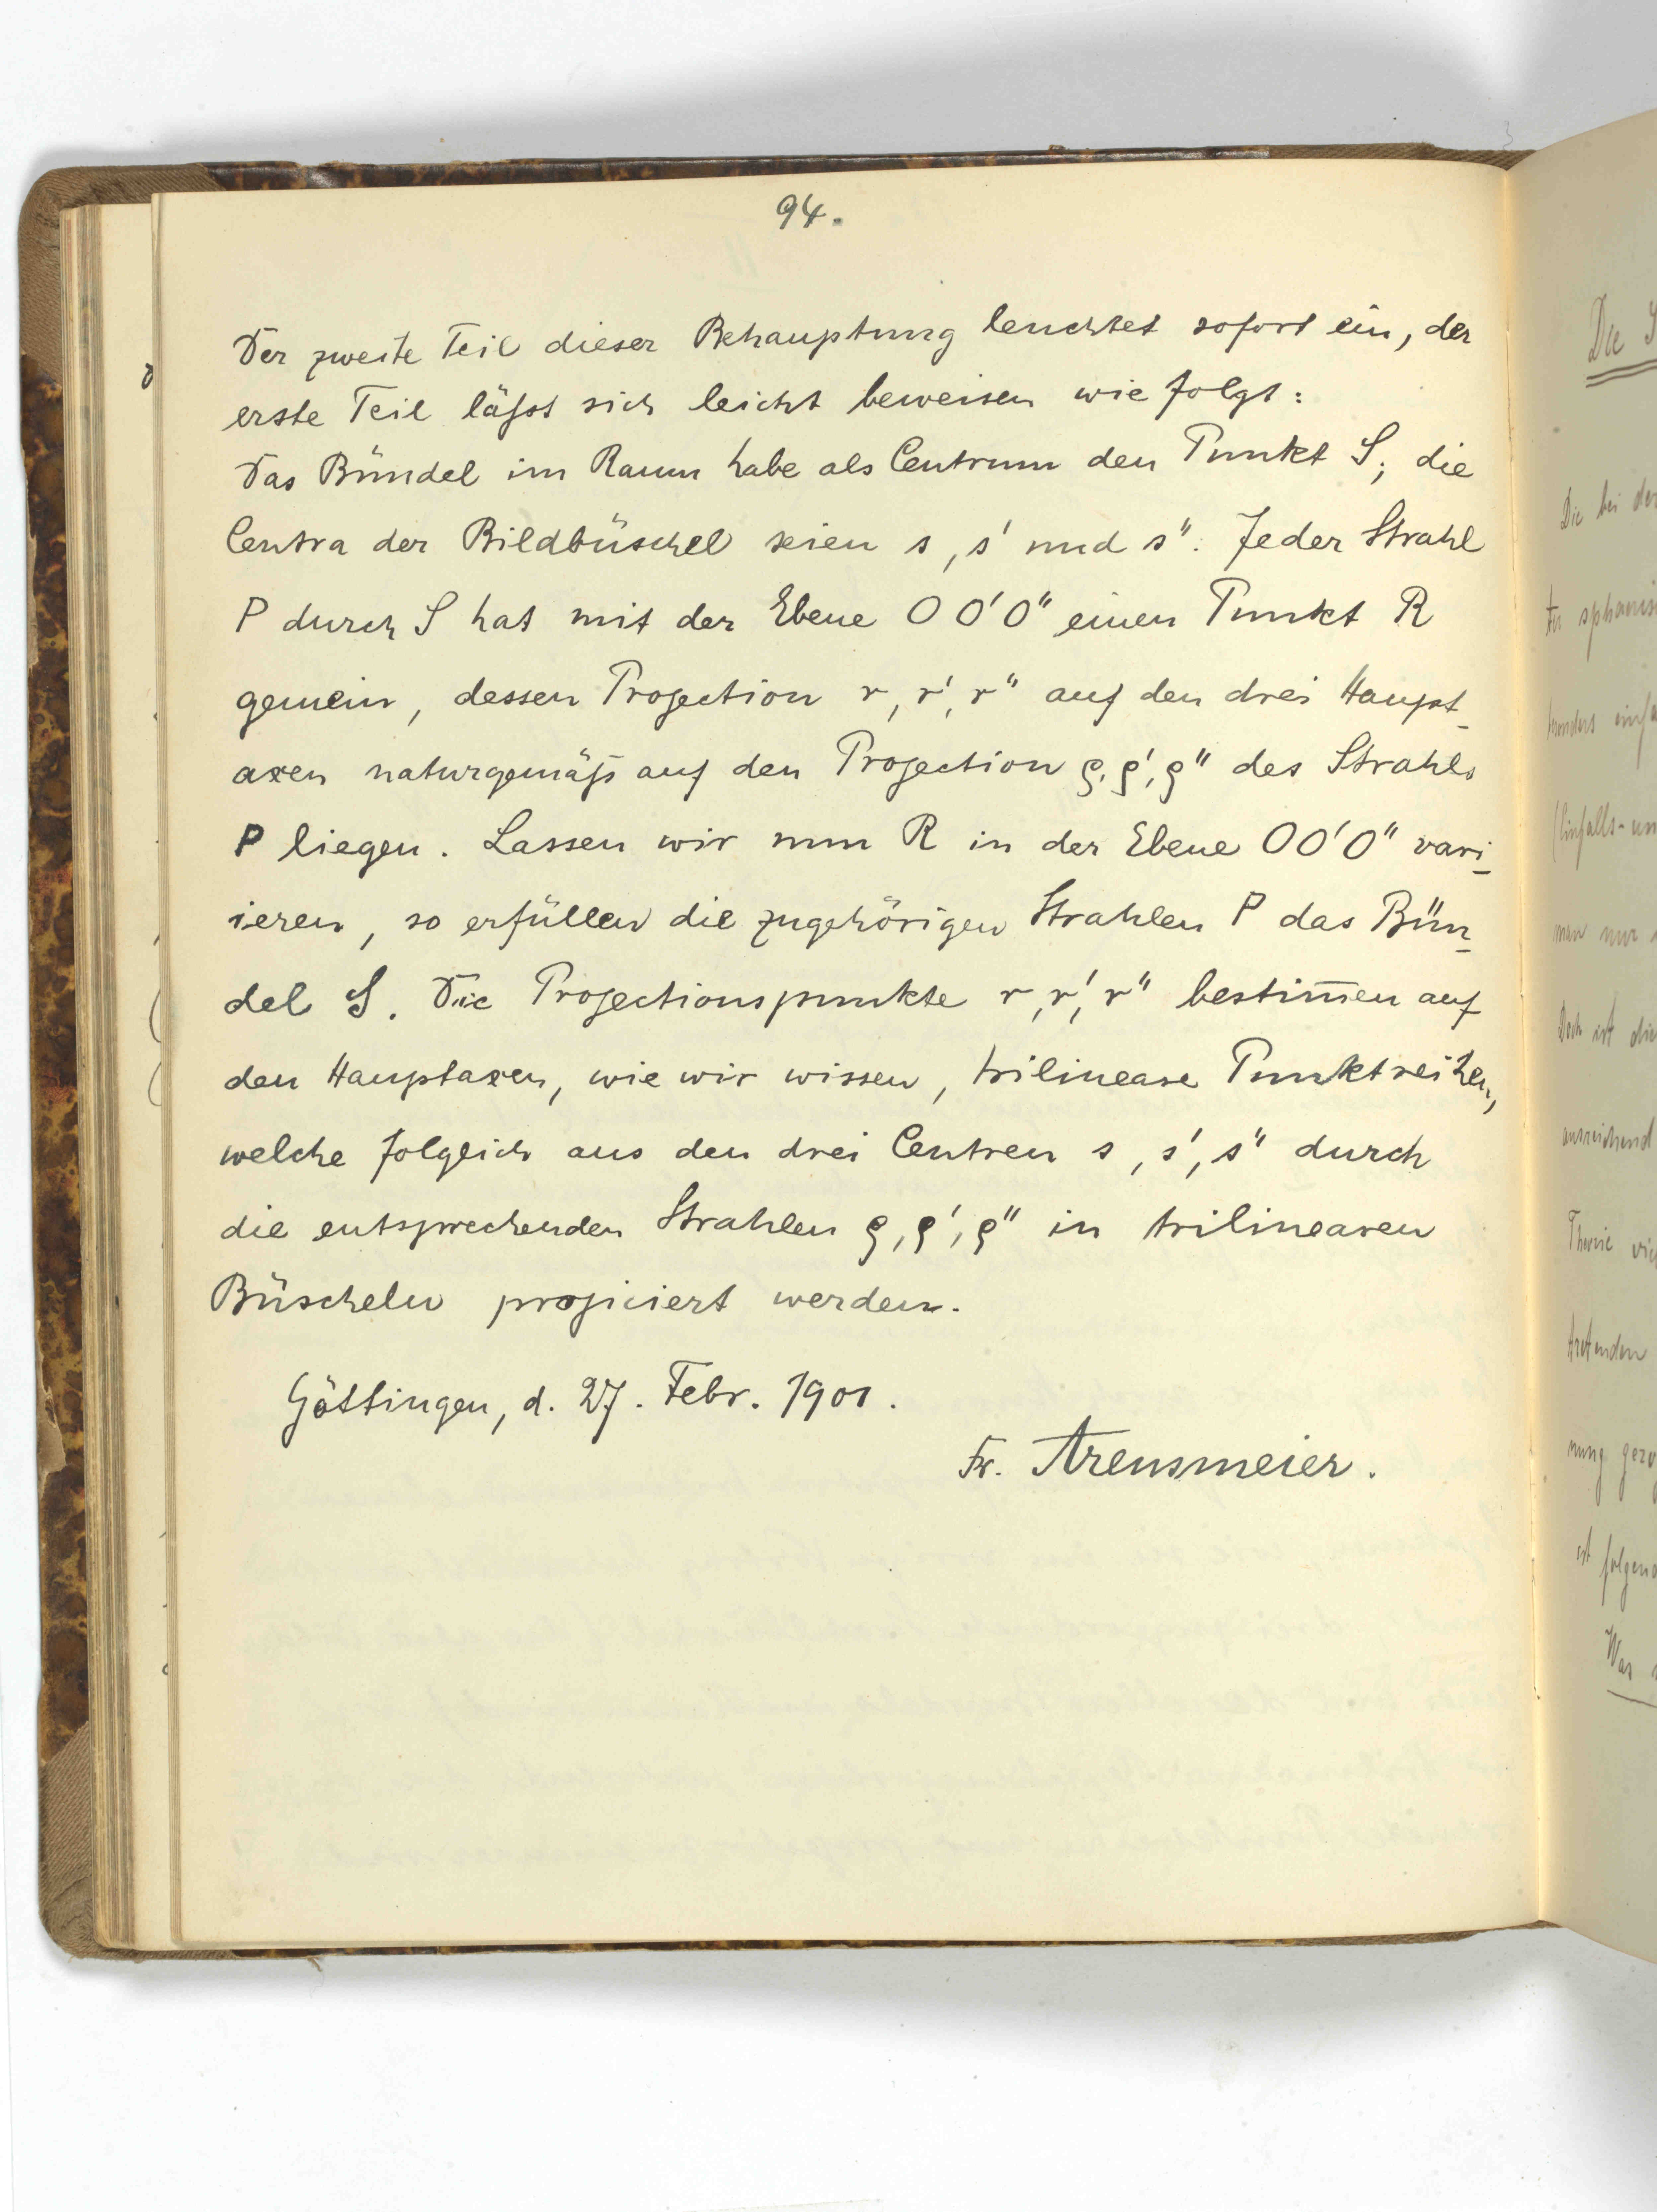 94.
Der zweite Teil dieser Behauptung leuchtet sofort ein, der
erste Teil läßt sich leicht beweisen wie folgt:
Das Bündel im Raum habe als Centrum den Punkt S; die
Centra der Bildbüschel seien s, s' und s". Jeder Strahl
P durch S hat mit der Ebene O O' O" einen Punkt R
gemein, dessen Projection r, r', r" auf den drei Haupt-
axen naturgemäß auf den Projection ρ, ρ', ρ" des Strahls
P liegen. Lassen wir nun R in der Ebene O O' O" vari-
ieren, so erfüllen die zugehörigen Strahlen P das Bün-
del S. Die Projectionspunkte r, r', r" bestim̅en auf
den Hauptaxen, wie wir wissen, trilineare Punktreihen,
welche folglich aus den drei Centren s, s', s" durch
die entsprechenden Strahlen ρ, ρ', ρ" in trilinearen
Büscheln projiciert werden.
Göttingen, d. 27. Febr. 1901.
Fr. Arensmeier.
Die
Die bei der
einfa
man nur
Doch ist die
ausreichend
Theorie
tretenden
nung
ist folgend
Was